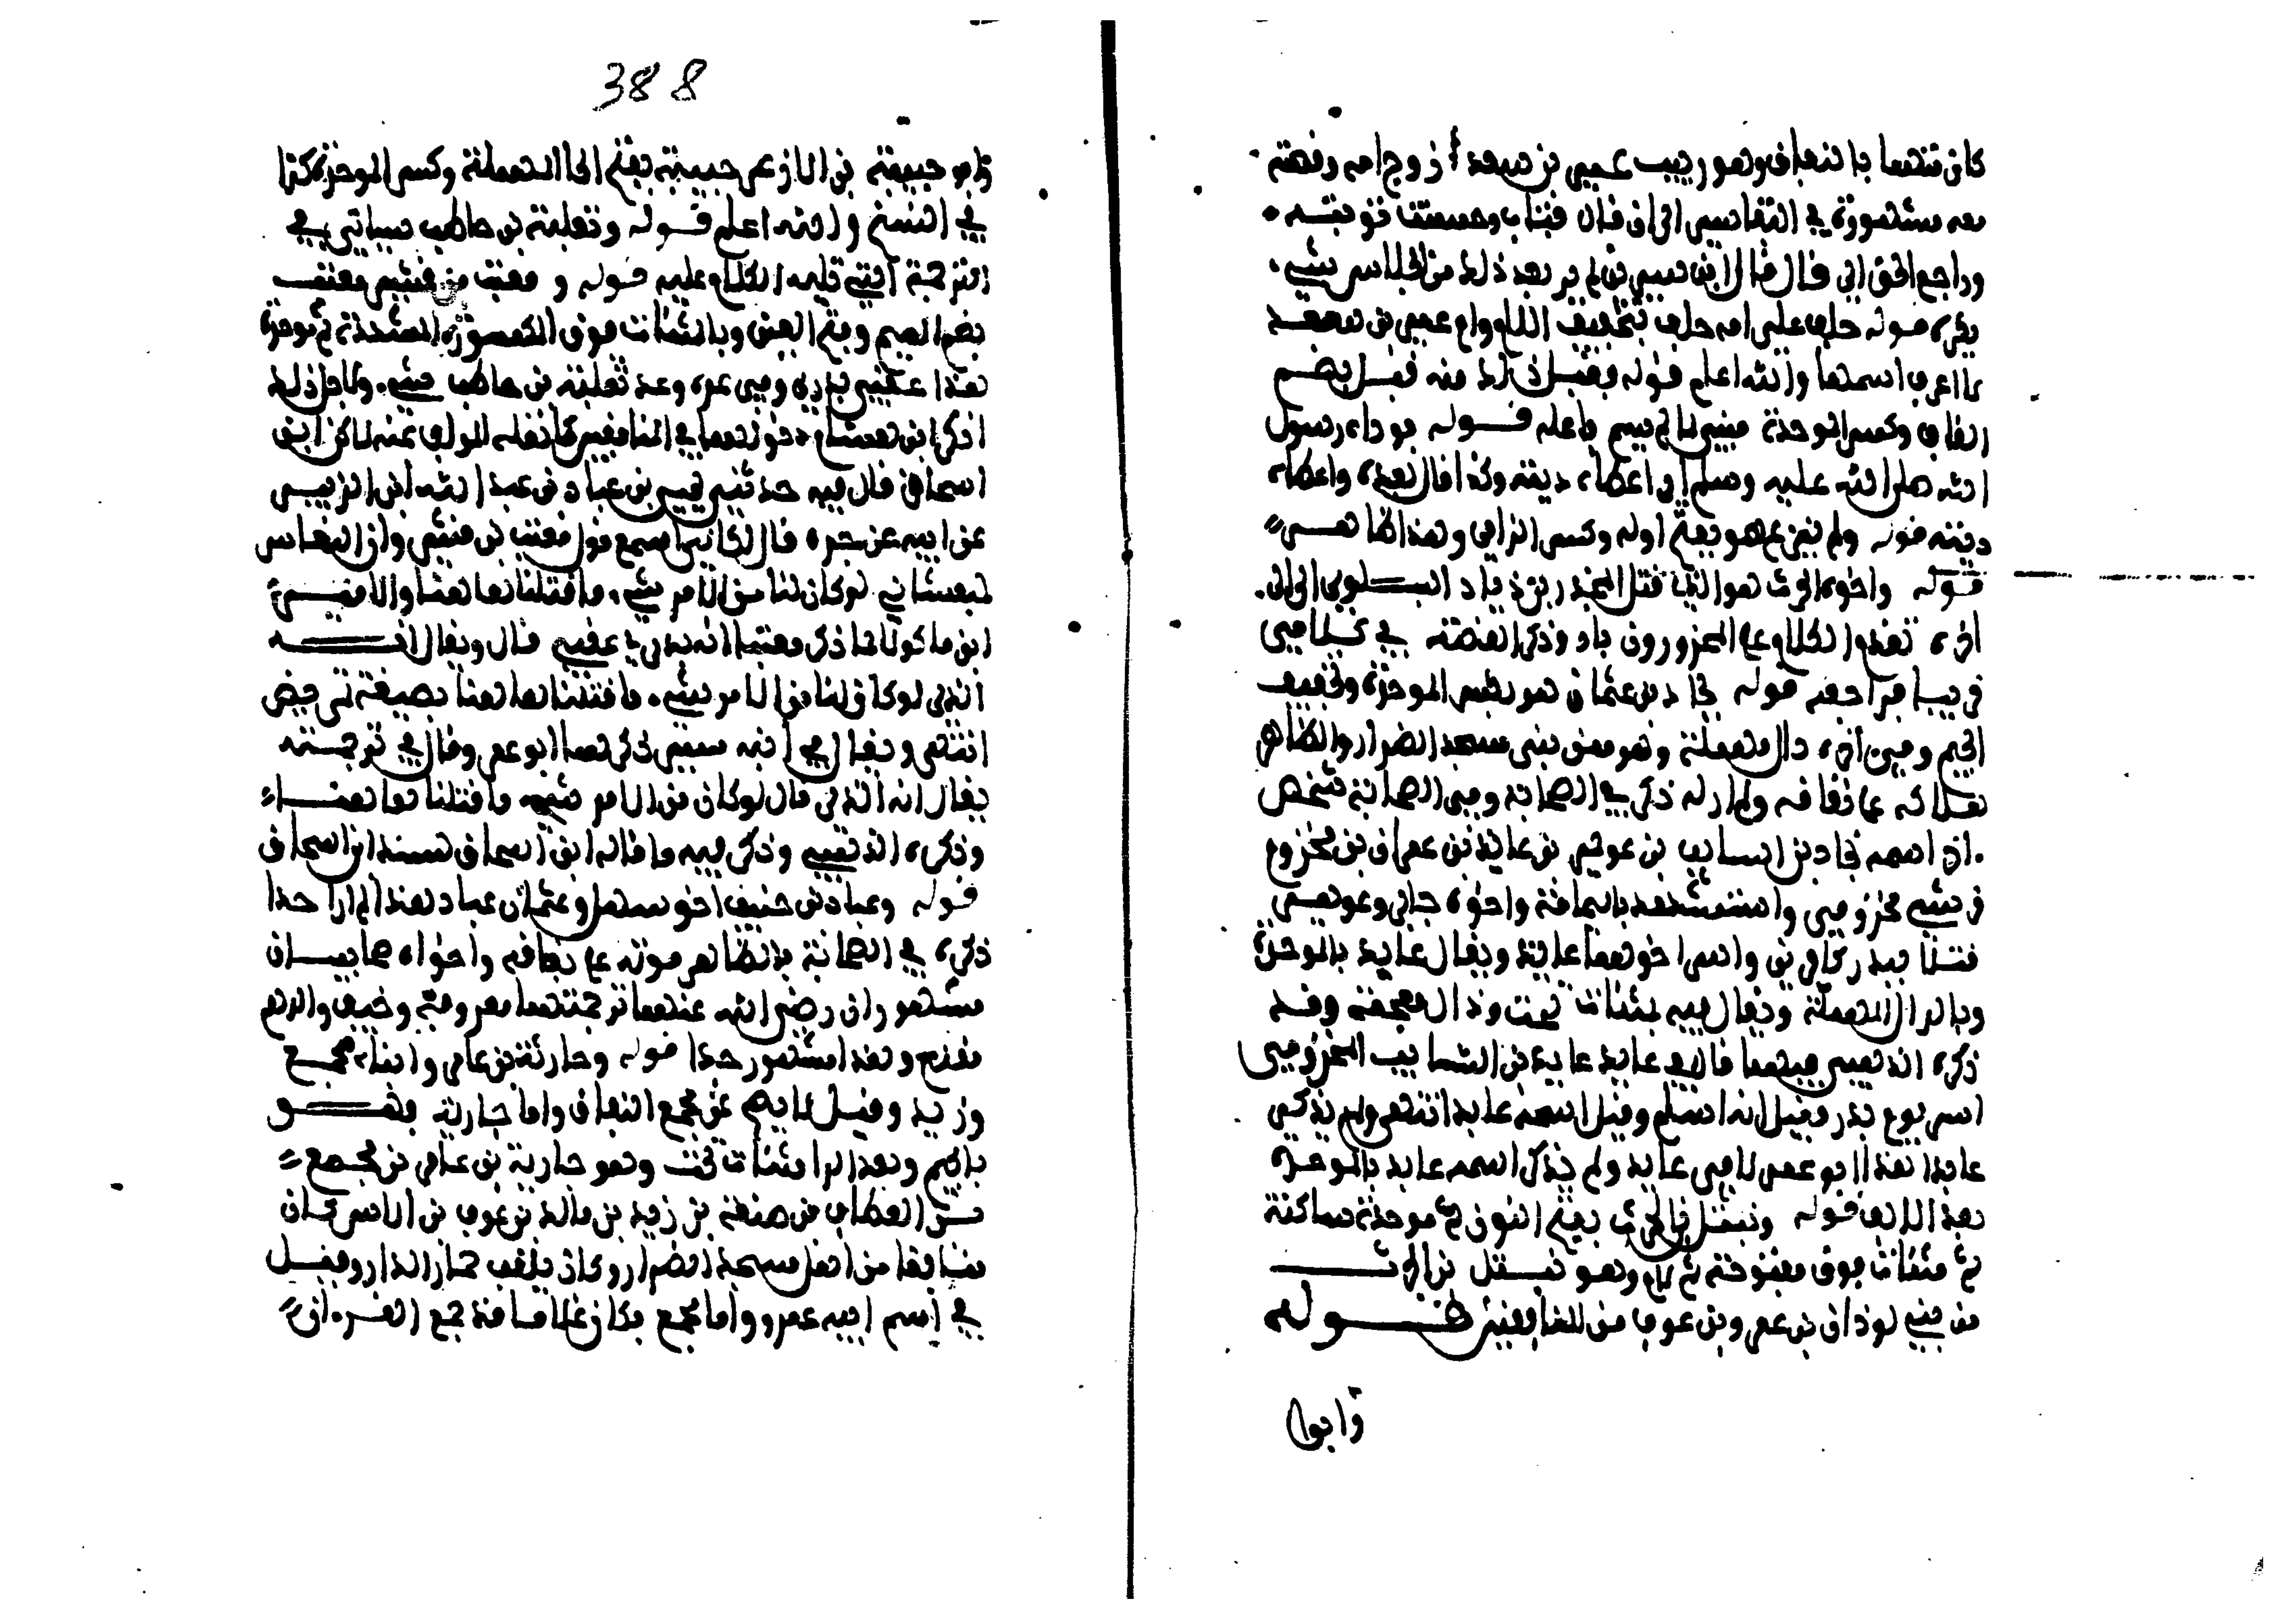 كان متهما بالنفاق وهو ربيب عمير بن سعد زوج امه وقصته
معه مشهورة في التفاسير الى ان قال فتاب وحسنت توبته
وراجع الحق الى قال قال ابن سيرين لم ير بعد ذلك من الجلاس شيء
يكره قوله جلاس على امه جلاس بتخفيف اللام وام عمير بن سعد
لا اعرف اسمها والله اعلم قوله وقتل ذلك منه قتل بضم
القاف وكسر الموحدة مبني لما لم يسم فاعله قوله فوداه رسول
الله صلى الله عليه وسلم اي اعطاه ديته وكذا قال بعده واعطاه
ديته قوله ولم ينزع هو بفتح اوله وكسر الزاي وهذا ظاهر
قوله واخوه الحرث هو الذي قتل المجذر بن ذياد البلوي الى
اخره تقدم الكلام على المجذر بن ذياد وذكر القصة في
قريبا فراجعه قوله بجاد بن عثمان هو بكسر الموحدة وتخفيف
الجيم وفي اخره دال مهملة وهو ممن بنى مسجد الضرار والظاهر
هلاكه على نفاقه ولم ار له ذكر في الصحابة وفي الصحابة شخص
اخر اسمه بجاد بن السايب بن عويمر بن عايذ بن عمران بن مخزوم
قرشي مخزومي واستشهد باليمامة واخوه جابر وعويمر
قتلا ببدر كافرين واسر اخوهما عايذ ويقال عابد بالموحدة
وبالدال المهملة ويقال فيه بمثناة تحت وذال معجمة وقد
ذكره الذهبي فيهما فقال في عابد عابد بن السايب المخزومي
اسر يوم بدر وقيل انه اسلم وقيل اسمه عايذ انتهى ولم يذكر
عابدا هذا ابو عمر لا في عايذ ولم يذكر اسمه عابد بالموحدة
بعد الالف قوله ونبتل بن الحرث بفتح النون ثم موحدة ساكنة
ثم مثناة فوق مفتوحة ثم لام وهو نبتل بن الحرث
من بني لوذان بن عمرو بن عوف من المنافقين قوله
وابو
وابو حبيبة بن الازعر حبيبة بفتح الحا المهملة وكسر الموحدة كذا
في النسخ والله اعلم قوله وثعلبة بن حاطب سياتي في
الترجمة التي تليه الكلام عليه قوله ومعتب بن قشير معتب
بضم الميم وفتح العين وبالمثناة فوق المكسورة المشددة ثم موحدة
هذا عقبي بدري وفي عده وعد ثعلبة بن حاطب شيء ولاجل ذلك
انكر ابن هشام دخولهما في المنافقين كما نقله المولف عنه لكن ابن
اسحاق قال فيه حدثني يحيى بن عباد بن عبد الله بن الزبير
عن ابيه عن جده قال لكاني اسمع قول معتب بن قشير وان النعاس
ليغشاني لو كان لنا من الامر شيء ما قتلنا ها هنا والامير
ابن ماكولا لما ذكر معتبا انه بدري عقبي قال ويقال انه
الذي لو كان لنا من الامر شيء ما قتلنا ها هنا بصيغة تمريض
انتهى ويقال في ابيه بشير ذكرهما ابو عمر وقال في ترجمته
يقال انه الذي قال لو كان من الامر شيء ما قتلنا ها هنا
وذكره الذهبي وذكر فيه ما قاله ابن اسحاق بسند ابن اسحاق
قوله وعباد بن حنيف اخو سهل وعثمان عباد هذا لم ار احدا
ذكره في الصحابة والظاهر موته على نفاقه واخواه صحابيان
مشهوران رضي الله عنهما ترجمتهما معروفة وحنيف والدهم
تقدم وهذا مشهور جدا قوله وجارية بن عامر وابناه مجمع
وزيد وقيل لم يصح عن مجمع النفاق واما جارية فهو
بالجيم وبعد الرا مثناة تحت وهو جارية بن عامر بن مجمع
بن العطاف بن ضبيعة بن زيد بن مالك بن عوف بن الاوس كان
منافقا من اهل مسجد الضرار وكان يلقب حمار الدار وقيل
في اسم ابيه عمرو واما مجمع فكان غلاما قد جمع القران
388